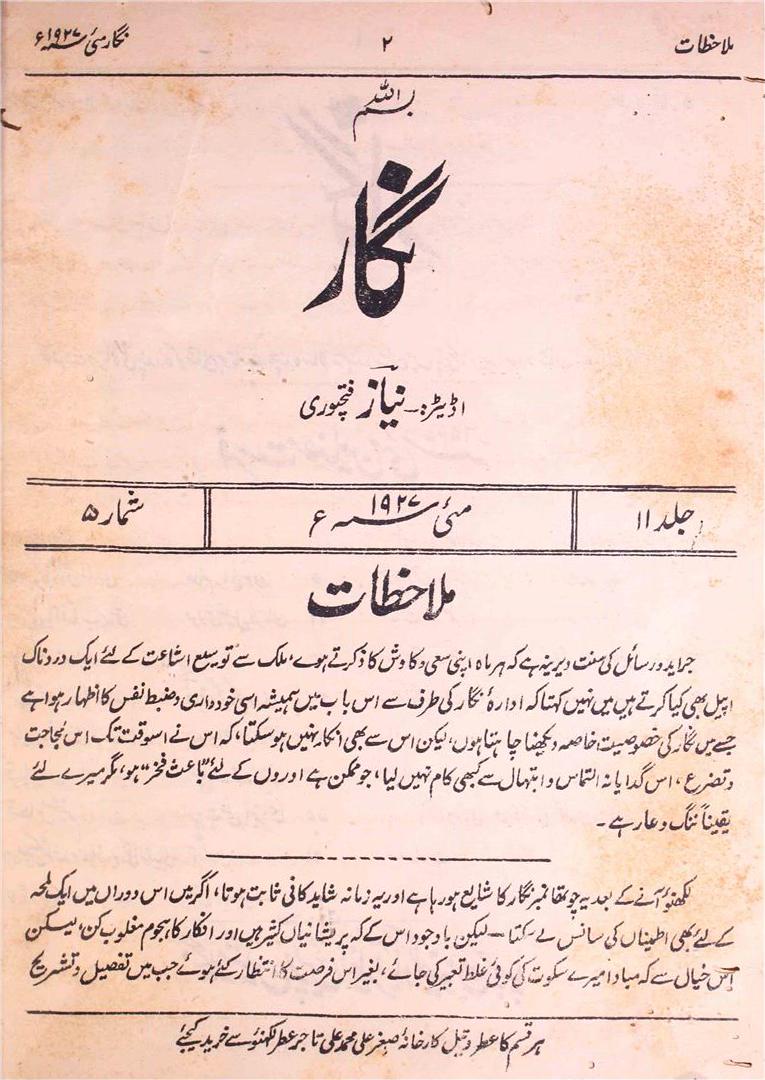 ملاحظات ۲ نگار مئی سنہ ۱۹۲۷ء
بسم اللہ
نگار
اڈیٹر:۔ نیاز فتحپوری
جلد ۱۱ مئی سنہ ۱۹۲۷ء شمار ۵
ملاحظات
جراید و رسائل کی سنت دیرینہ ہے کہ ہر ماہ اپنی سعی و کاوش کا ذکر کرتے ہوے، ملک سے توسیع اشاعت کے لئے ایک دردناک
اپیل بھی کیا کرتے ہیں میں نہیں کہتا کہ ادارۂ نگار کی طرف سے اس باب میں ہمیشہ اسی خود داری و ضبط نفس کا اظہار ہوا ہے
جسے میں نگار کی خصوصیت خاصہ دیکھنا چاہتا ہوں، لیکن اس سے بھی انکار نہیں ہو سکتا، کہ اس نے اسوقت تک اس لجاجت
و تضرع، اس گدایانہ التماس و ابتہال سے کبھی کام نہیں لیا، جو ممکن ہے اوروں کے لئے "باعث فخر" ہو، مگر میرے لئے
یقیناً ننگ و عار ہے۔
لکھنؤ آنے کے بعد یہ چوتھا نمبر نگار کا شایع ہو رہا ہے اور یہ زمانہ شاید کافی ثابت ہوتا، اگر میں اس دوراں میں ایک لمحہ
کے لئے بھی اطمیناں کی سانس لے سکتا ۔ لیکن باوجود اس کے کہ پریشانیاں کثیر ہیں اور افکار کا ہجوم مغلوب کن، لیکن
اس خیال سے کہ مبادا میرے سکوت کی کوئی غلط تعبیر کی جائے، بغیر اس فرصت کا انتظار کئے ہوئے جب میں تفصیل و تشریح
ہر قسم کا عطر و تیل کارخانۂ اصغر علی محمد علی تاجر عطر لکھنؤ سے خرید کیجئے